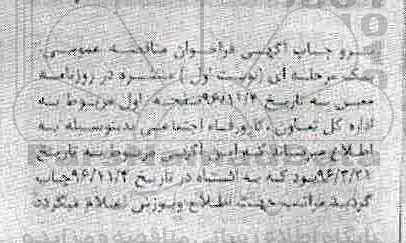 پیرو چاپ آگهی فراخوان مناقصه عمومی
یک مرحله ای (نوبت اول) منتشره در روزنامه
مورخ به تاریخ ۹۶/۱۱/۴ صفحه اول مربوط به
اداره کل تعاون، کار و رفاه اجتماعی بدینوسیله به
اطلاع میرساند که این آگهی مربوط به تاریخ
۹۶/۳/۲۱ بود که به اشتباه در تاریخ ۹۶/۱۱/۴ چاپ
گردید مراتب جهت اطلاع و پوزش اعلام میگردد